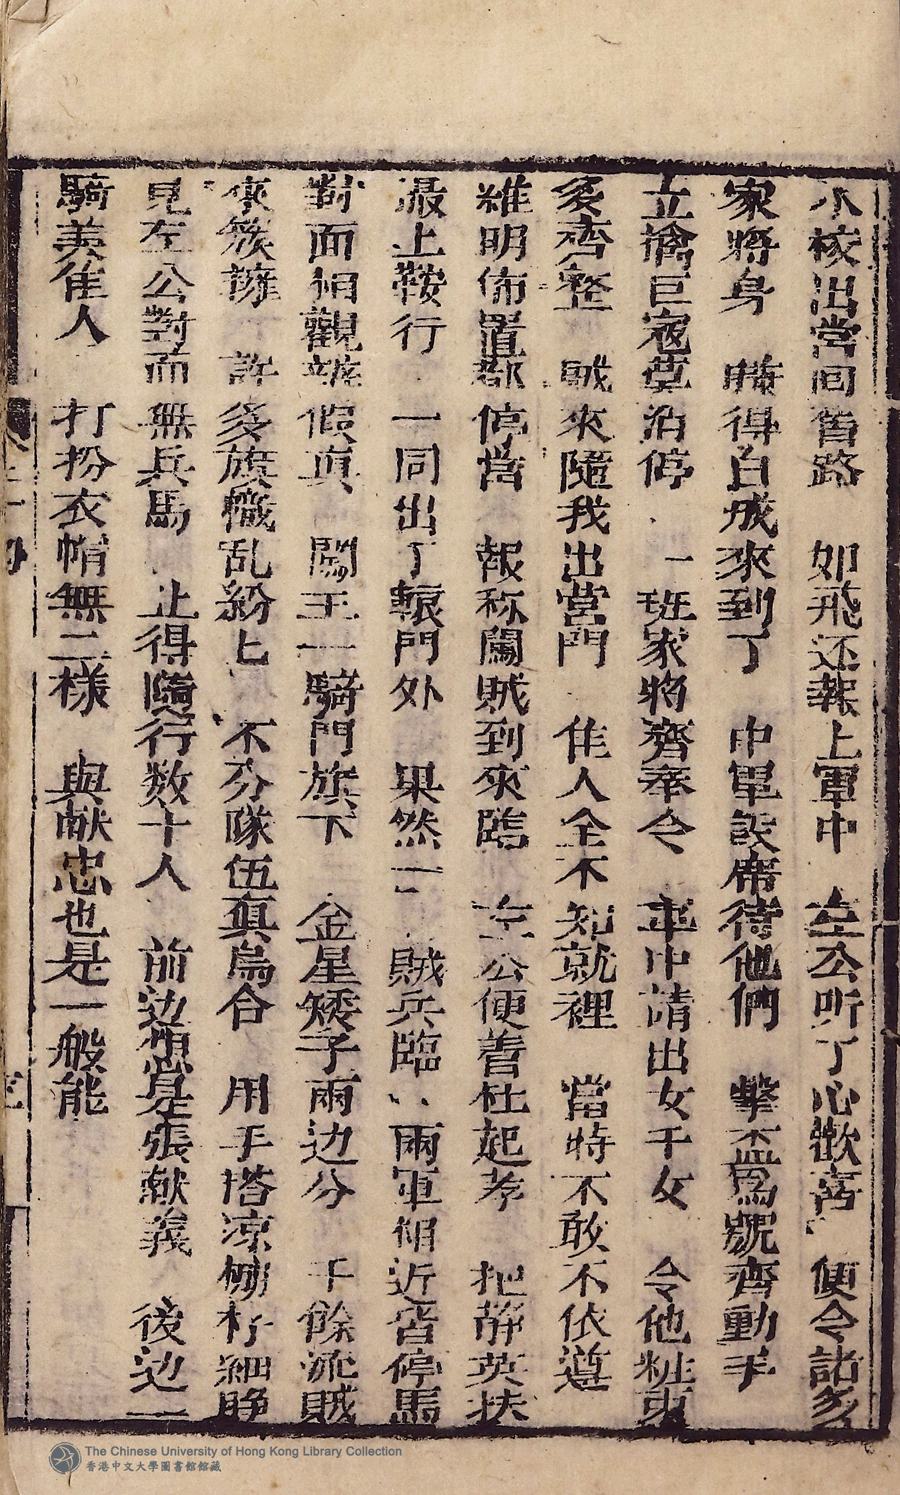 小校出営回旧路　如飛还報上軍中　左公听了心歡喜　便令諸多
家將身　勝得自成來到了　中軍設席待他們　擊盃爲號齊動手
立擒巨寇莫沿停　一班家將齊奉令　軍中請出女千女　令他粧束
多齊整　賊來隨我出营門　佳人全不知就裡　當時不敢不依遵
維明佈置都停當　報称闖賊到來臨　左公便善杜起孝　把静英扶
上鞍行　一同出了轅門外　果然一賊兵臨　兩軍相近皆停馬
對面相觀辨假真　闖王一騎門旗下　金星矮子兩边分　千餘流賊
來簇擁　許多旗幟乱紛匕　不分隊伍真烏合　用手搭凉棚仔細睁
見左公對面無兵馬　止得隨行数十人　前边想是張献義　後边一
騎美佳人　打扮衣帽無二樣　與献忠也是一般能
The Chinese University of Hong Kong Library Collection
香港中文大學圖書館館藏